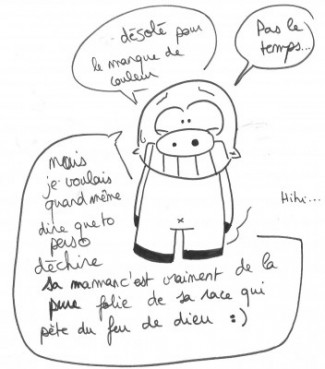 désolé pour
le manque de
couleur
Pas le
temps...
mais
je voulais
quand même
dire que to
perso
déchire
sa maman c'est vraiment de la
pure folie de sa race qui
pète du feu de dieu :)
Hihi...